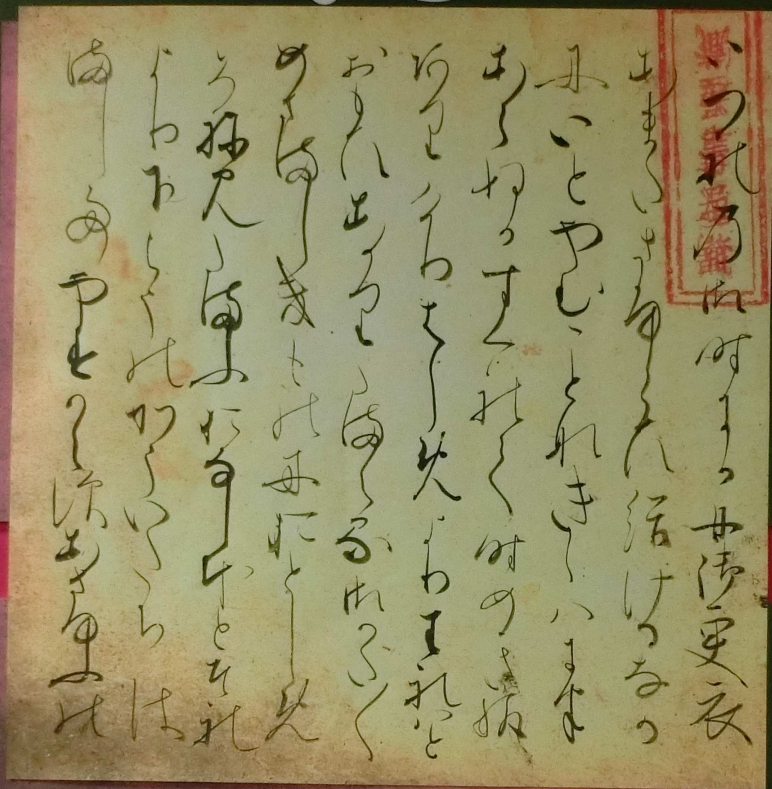 いつれの御時にか女御更衣
あまたさふらひ給けるなか
にいとやむことなきゝはには
あらぬかすくれて時めき給
ありけりはしめよりわれはと
おもひあかりたまへる御かた〱
めさましきものにおとしめ
そねみたまふおなしほとそれ
より下らうのかういたちは
ましてやすからすあさゆふの